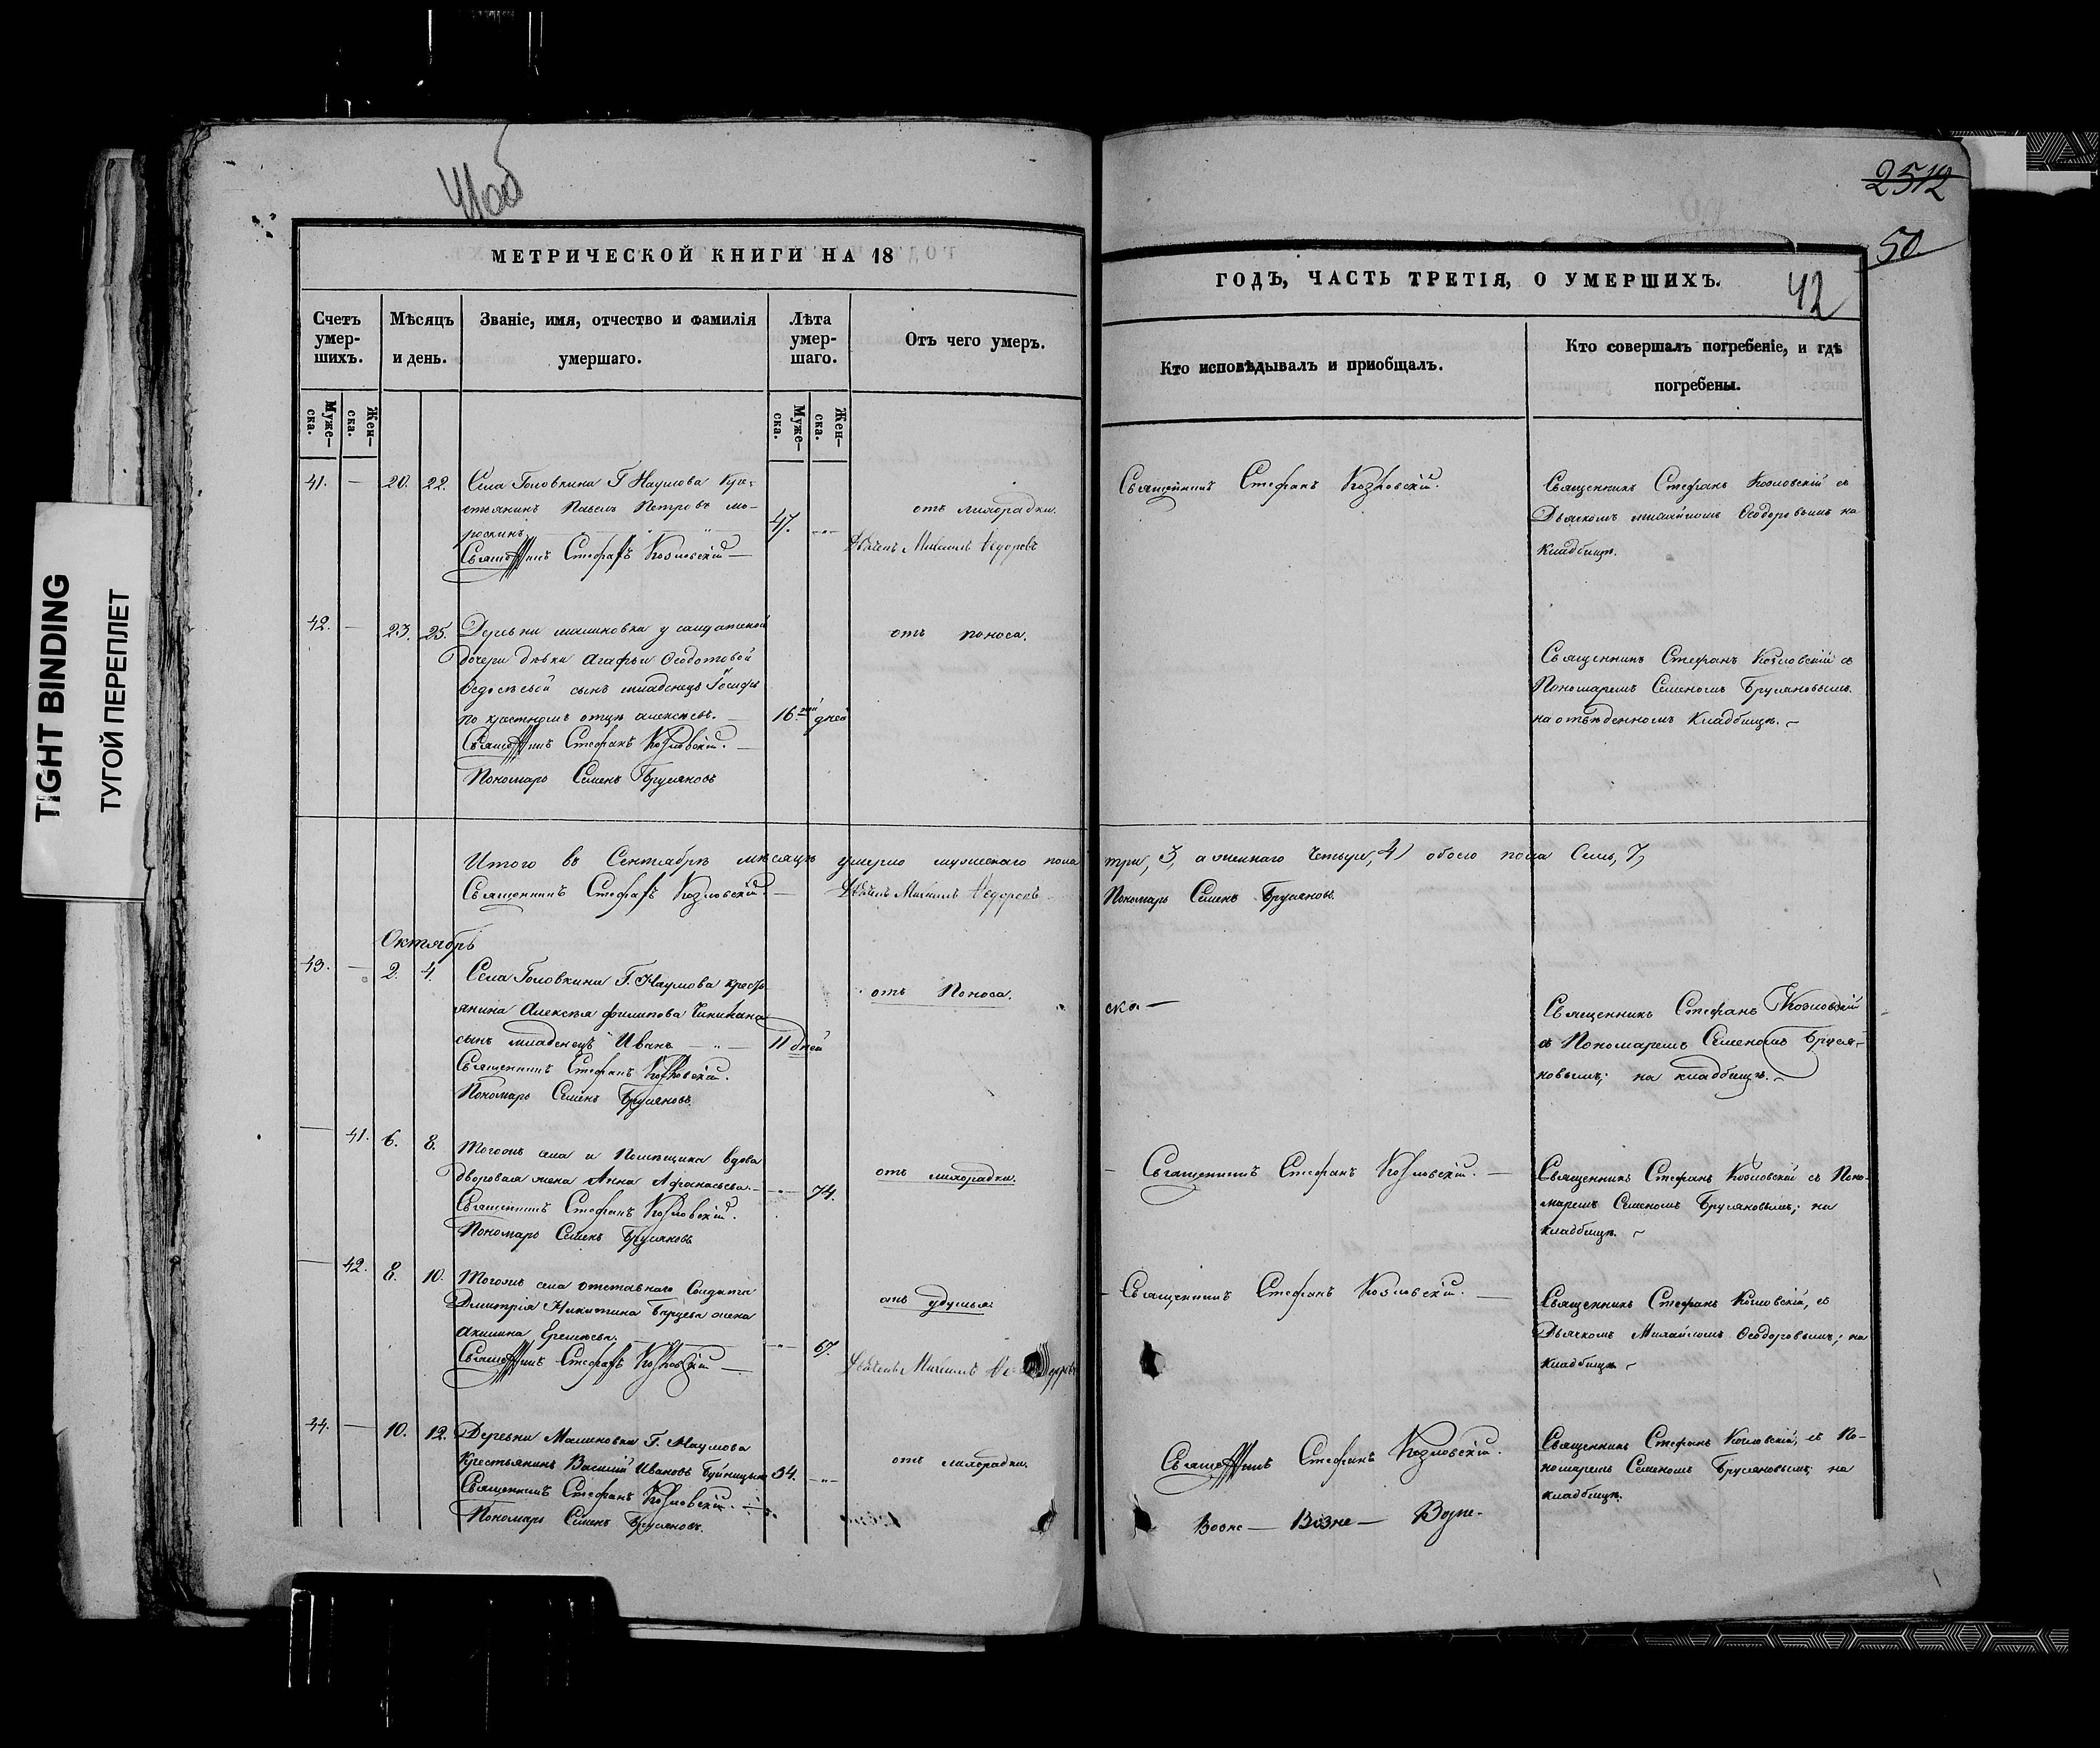 TIGHT BINDING
ТУГОЙ ПЕРЕПЛЕТ
41об
2512
50
42
МЕТРИЧЕСКОЙ КНИГИ НА 18
ГОДЪ, ЧАСТЬ ТРЕТІЯ, О УМЕРШИХЪ.
Счетъ умер-
шихъ.
Мѣсяцъ
и день.
Званіе, имя, отчество и фамилія
умершаго.
Лѣта
умер-
шаго.
Отъ чего умеръ.
Кто исповѣдывалъ и пріобщалъ.
Кто совершалъ погребеніе, и гдѣ
погребены.
Муже-
ска.
Жен-
ска.
Муже-
ска.
Жен-
ска.
41. — 20. 22. Села Головкина Г Наумова Кре-
стьянинъ Павелъ Петровъ мо-
роскинъ 47.
Священникъ Стефанъ Козловскій
отъ лихорадки.
Дьячекъ Михаилъ Федоровъ
Священникъ Стефанъ Козловскій.
Священникъ Стефанъ Козловскій съ
Дьячкомъ михайломъ Ѳеодоровымъ на
Кладбищѣ.
42. — 23. 25. Деревни малиновки у салдатской
дочери дѣвки Агафьи Ѳеодотовой
сынъ младенецъ Іосифъ
по крестномъ отцѣ алексѣевъ. 16 дней
Священникъ Стефанъ Козловскій.
Пономарь Семенъ Брусяновъ
отъ поноса.
Священникъ Стефанъ Козловскій съ
Пономаремъ Семеномъ Брусяновымъ.
на отвѣденномъ Кладбищѣ.
Итого въ Сентябрѣ мѣсяцѣ умерло мужескаго пола три, 3, а женскаго Четыре, 4, обоего пола Семь, 7,
Священникъ Стефанъ Козловскій. Дьячекъ Михаилъ Федоровъ Пономарь Семенъ Брусяновъ.
Октябрь
43. — 2. 4. Села Головкина Г. Наумова кресть-
янина Алексѣя филипова
сынъ младенецъ Иванъ 11 дней
Священникъ Стефанъ Козловскій.
Пономарь Семенъ Брусяновъ.
отъ Поноса.
Священникъ Стефанъ Козловскій
съ Пономаремъ Семеномъ Бруся-
новымъ; на кладбищѣ.
— 41. 6. 8. Тогожъ села и Помѣщика вдова
дворовая жена Анна Афанасьева. 74.
Священникъ Стефанъ Козловскій.
Пономарь Семенъ Брусяновъ
отъ лихорадки.
Священникъ Стефанъ Козловскій.
Священникъ Стефанъ Козловскій съ Поно-
маремъ Семеномъ Брусяновымъ; на
кладбищѣ.
— 42. 8. 10. Тогожъ села отставнаго Солдата
Димитрія Никитина жена
акилина Еремѣева. 67.
Священникъ Стефанъ Козловскій
отъ удушья.
Дьячекъ Михаилъ Федоровъ
Священникъ Стефанъ Козловскій.
Священникъ Стефанъ Козловскій, съ
Дьячкомъ Михайломъ Ѳеодоровымъ; на
Кладбищѣ
44. — 10. 12. Деревни Малиновки Г. Наумова
Крестьянинъ Василій Ивановъ 34.
Священникъ Стефанъ Козловскій.
Пономарь Семенъ Брусяновъ.
отъ лихорадки.
Священникъ Стефанъ Козловскій.
Священникъ Стефанъ Козловскій, съ По-
номаремъ Семеномъ Брусяновымъ, на
кладбищѣ.